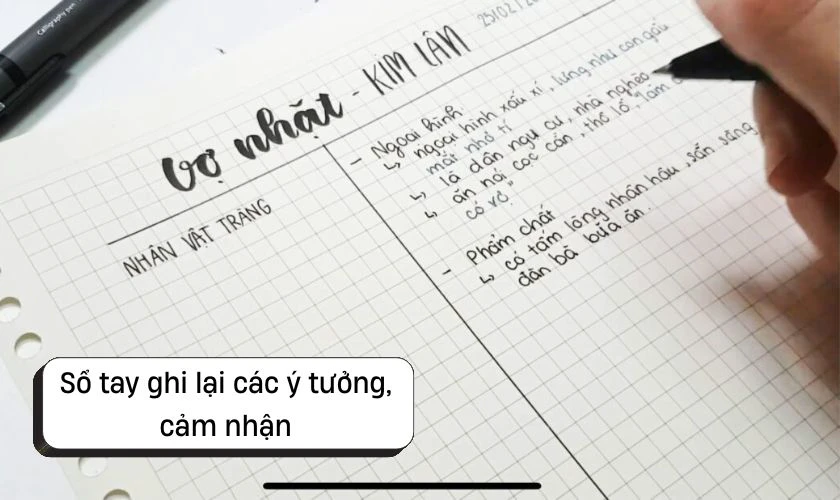 Calligraphy pen
25/02/20
vợ nhặt - KIM LÂN
NHÂN VẬT TRÀNG
- Ngoại hình
↳ ngoại hình xấu xí, lưng như con gấu
mắt nhỏ tí
↳ là dân ngụ cư, nhà nghèo
↳ ăn nói cọc cằn, thô lỗ, "làm
có vợ"
- Phẩm chất
↳ có tấm lòng nhân hậu, sẵn sàng
đãn bà bữa ăn.
Sổ tay ghi lại các ý tưởng,
cảm nhận